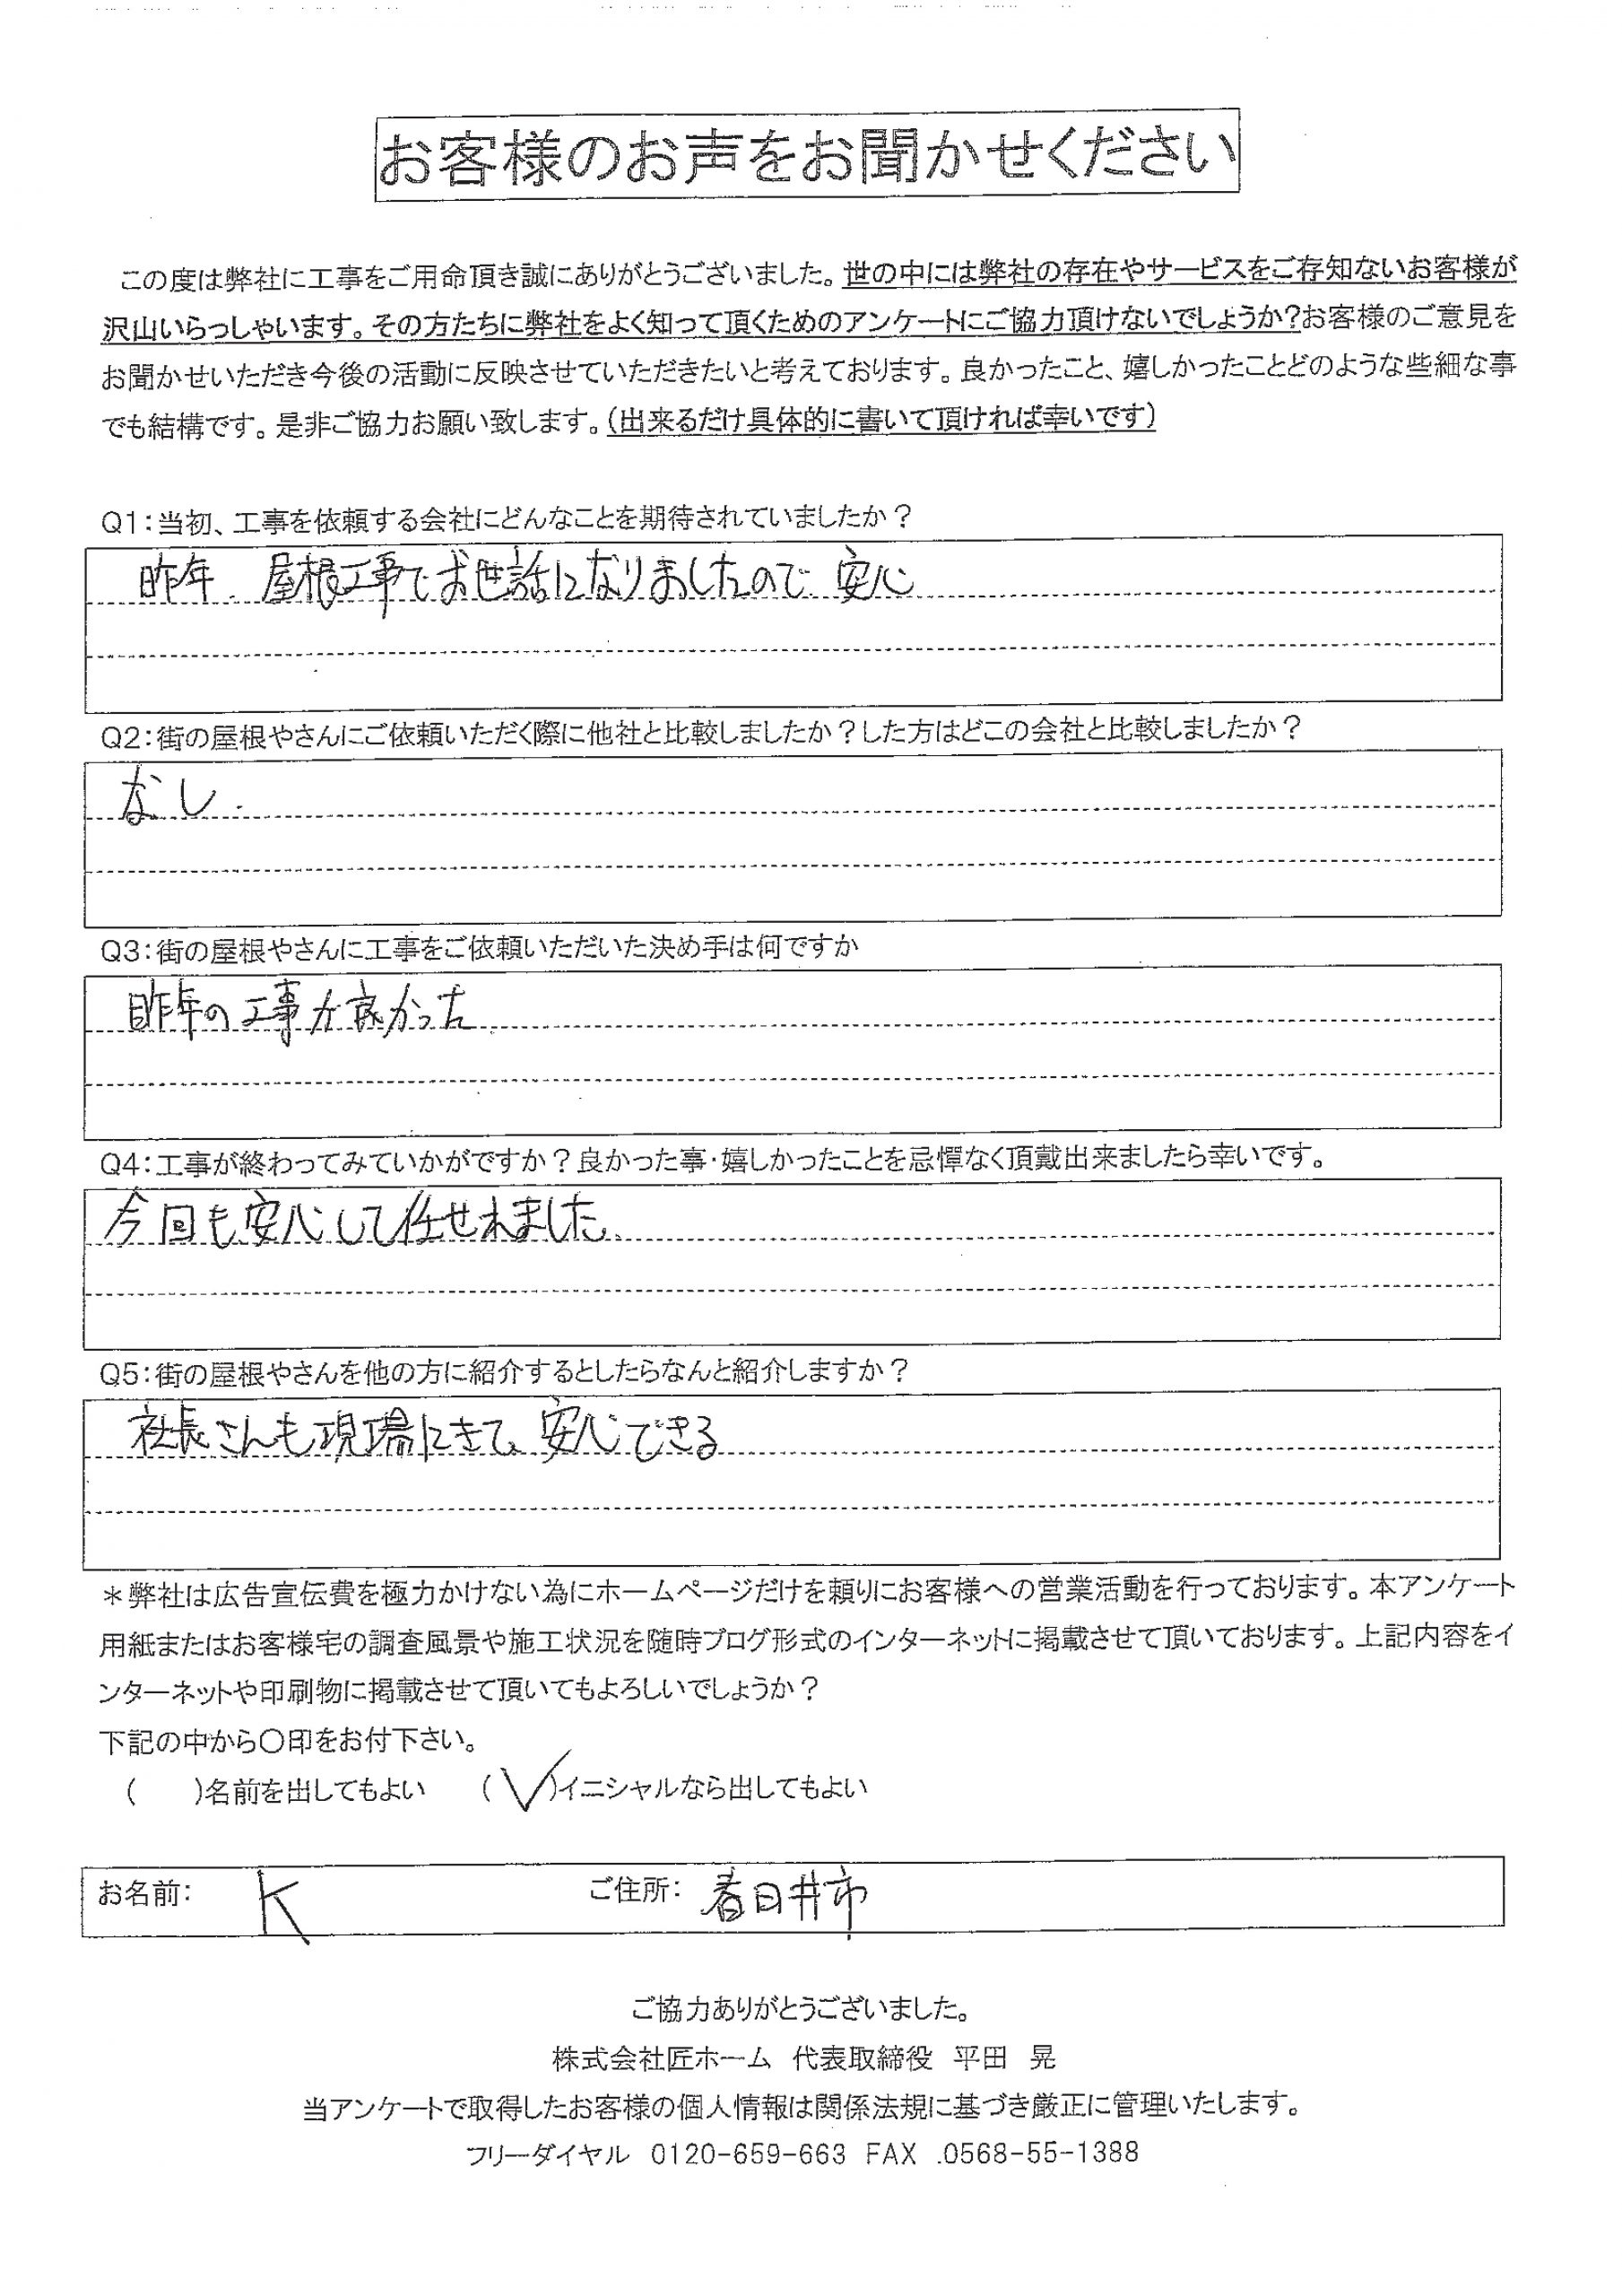 お客様のお声をお聞かせください
この度は弊社に工事をご用命頂き誠にありがとうございました。世の中には弊社の存在やサービスをご存知ないお客様が
沢山いらっしゃいます。その方たちに弊社をよく知って頂くためのアンケートにご協力頂けないでしょうか?お客様のご意見を
お聞かせいただき今後の活動に反映させていただきたいと考えております。良かったこと、嬉しかったことどのような些細な事
でも結構です。是非ご協力お願い致します。(出来るだけ具体的に書いて頂ければ幸いです)
Q1:当初、工事を依頼する会社にどんなことを期待されていましたか?
昨年、屋根工事でお世話になりましたので、安心
Q2:街の屋根やさんにご依頼いただく際に他社と比較しましたか?した方はどこの会社と比較しましたか?
なし.
Q3:街の屋根やさんに工事をご依頼いただいた決め手は何ですか
昨年の工事が良かった
Q4:工事が終わってみていかがですか?良かった事・嬉しかったことを忌憚なく頂戴出来ましたら幸いです。
今回も安心して任せれました。
Q5:街の屋根やさんを他の方に紹介するとしたらなんと紹介しますか?
社長さんも現場にきて、安心できる
*弊社は広告宣伝費を極力かけない為にホームページだけを頼りにお客様への営業活動を行っております。本アンケート
用紙またはお客様宅の調査風景や施工状況を随時ブログ形式のインターネットに掲載させて頂いております。上記内容をイ
ンターネットや印刷物に掲載させて頂いてもよろしいでしょうか?
下記の中から〇印をお付下さい。
(　　)名前を出してもよい　　(✓)イニシャルなら出してもよい
お名前: K　　ご住所: 春日井市
ご協力ありがとうございました。
株式会社匠ホーム　代表取締役　平田　晃
当アンケートで取得したお客様の個人情報は関係法規に基づき厳正に管理いたします。
フリーダイヤル 0120-659-663 FAX .0568-55-1388